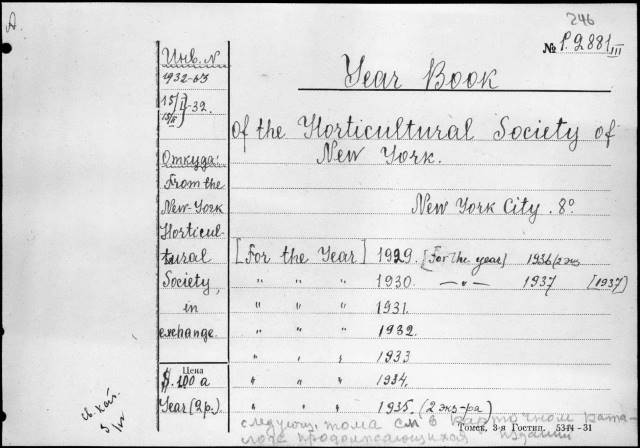 A.
246
№ P.2881 III
Инв. N
1932-63
15/I-32.
15/II
Откуда:
From the
New-York
Horticul-
tural
Society,
in
exchange.
Цена
$. 1.00 a
Year (2р.)
Year Book
of the Horticultural Society of
New York.
New York City. 8º
[For the Year] 1929. [For the year] 1936 (2 экз
" " " 1930. —"— 1937 [1937]
" " " 1931.
" " " 1932.
" " " 1933
" " " 1934.
" " " 1935. (2 экз-ра)
следующ. тома см в карточном ката-
логе продолжающихся изданий
Томск, 3-я Гостип. 5344-31
св. кат.